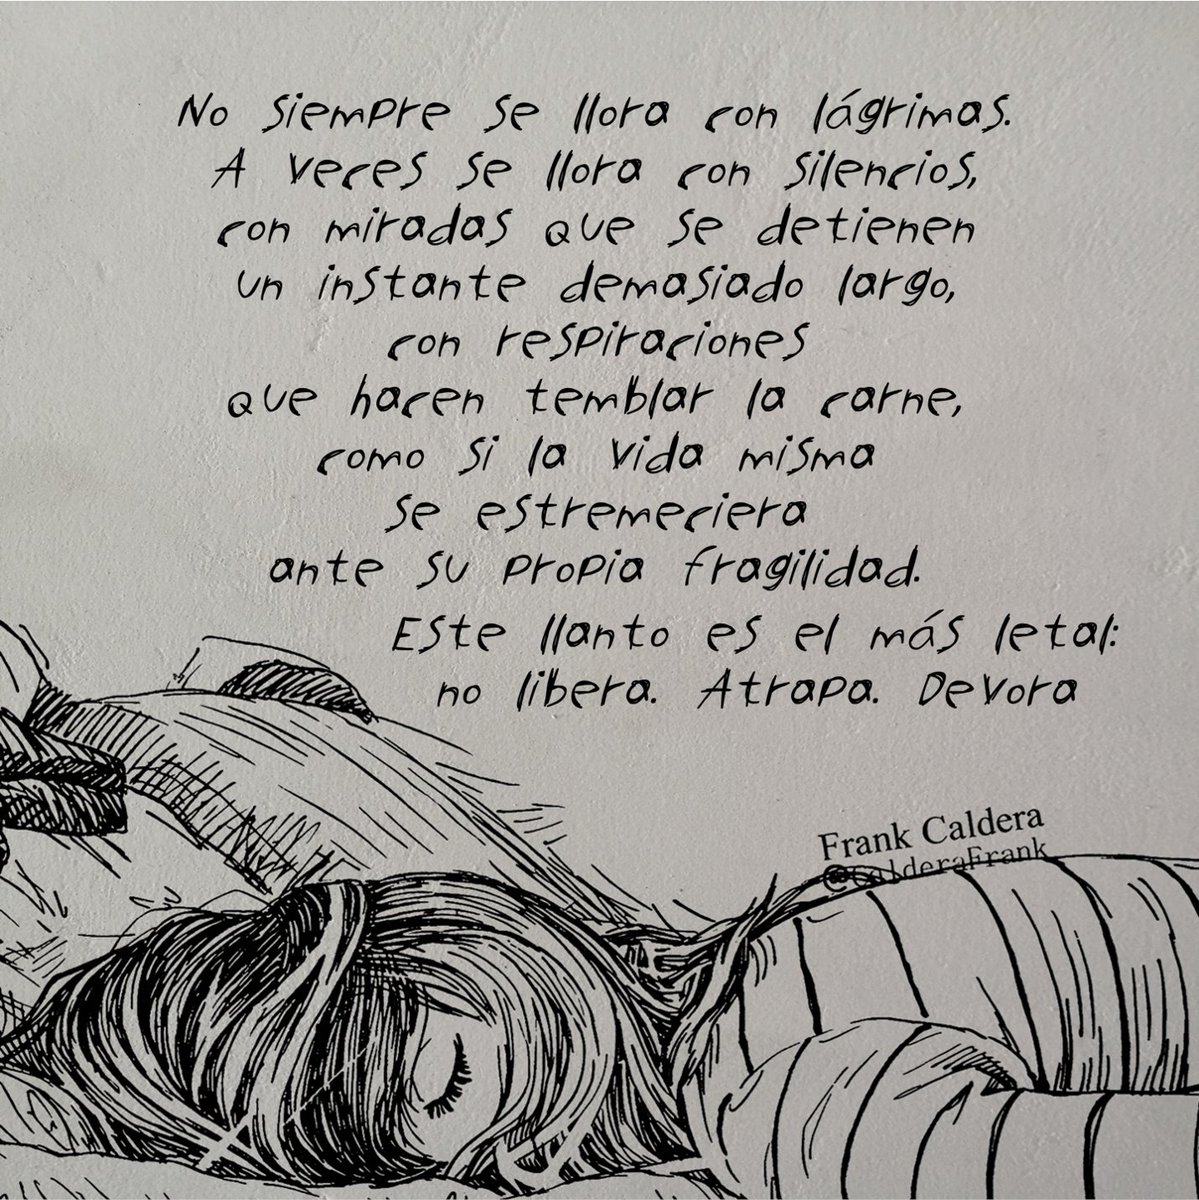 No siempre se llora con lágrimas.
A veces se llora con silencios,
con miradas que se detienen
un instante demasiado largo,
con respiraciones
que hacen temblar la carne,
como si la vida misma
se estremeciera
ante su propia fragilidad.
Este llanto es el más letal:
no libera. Atrapa. Devora
Frank Caldera
@CalderaFrank